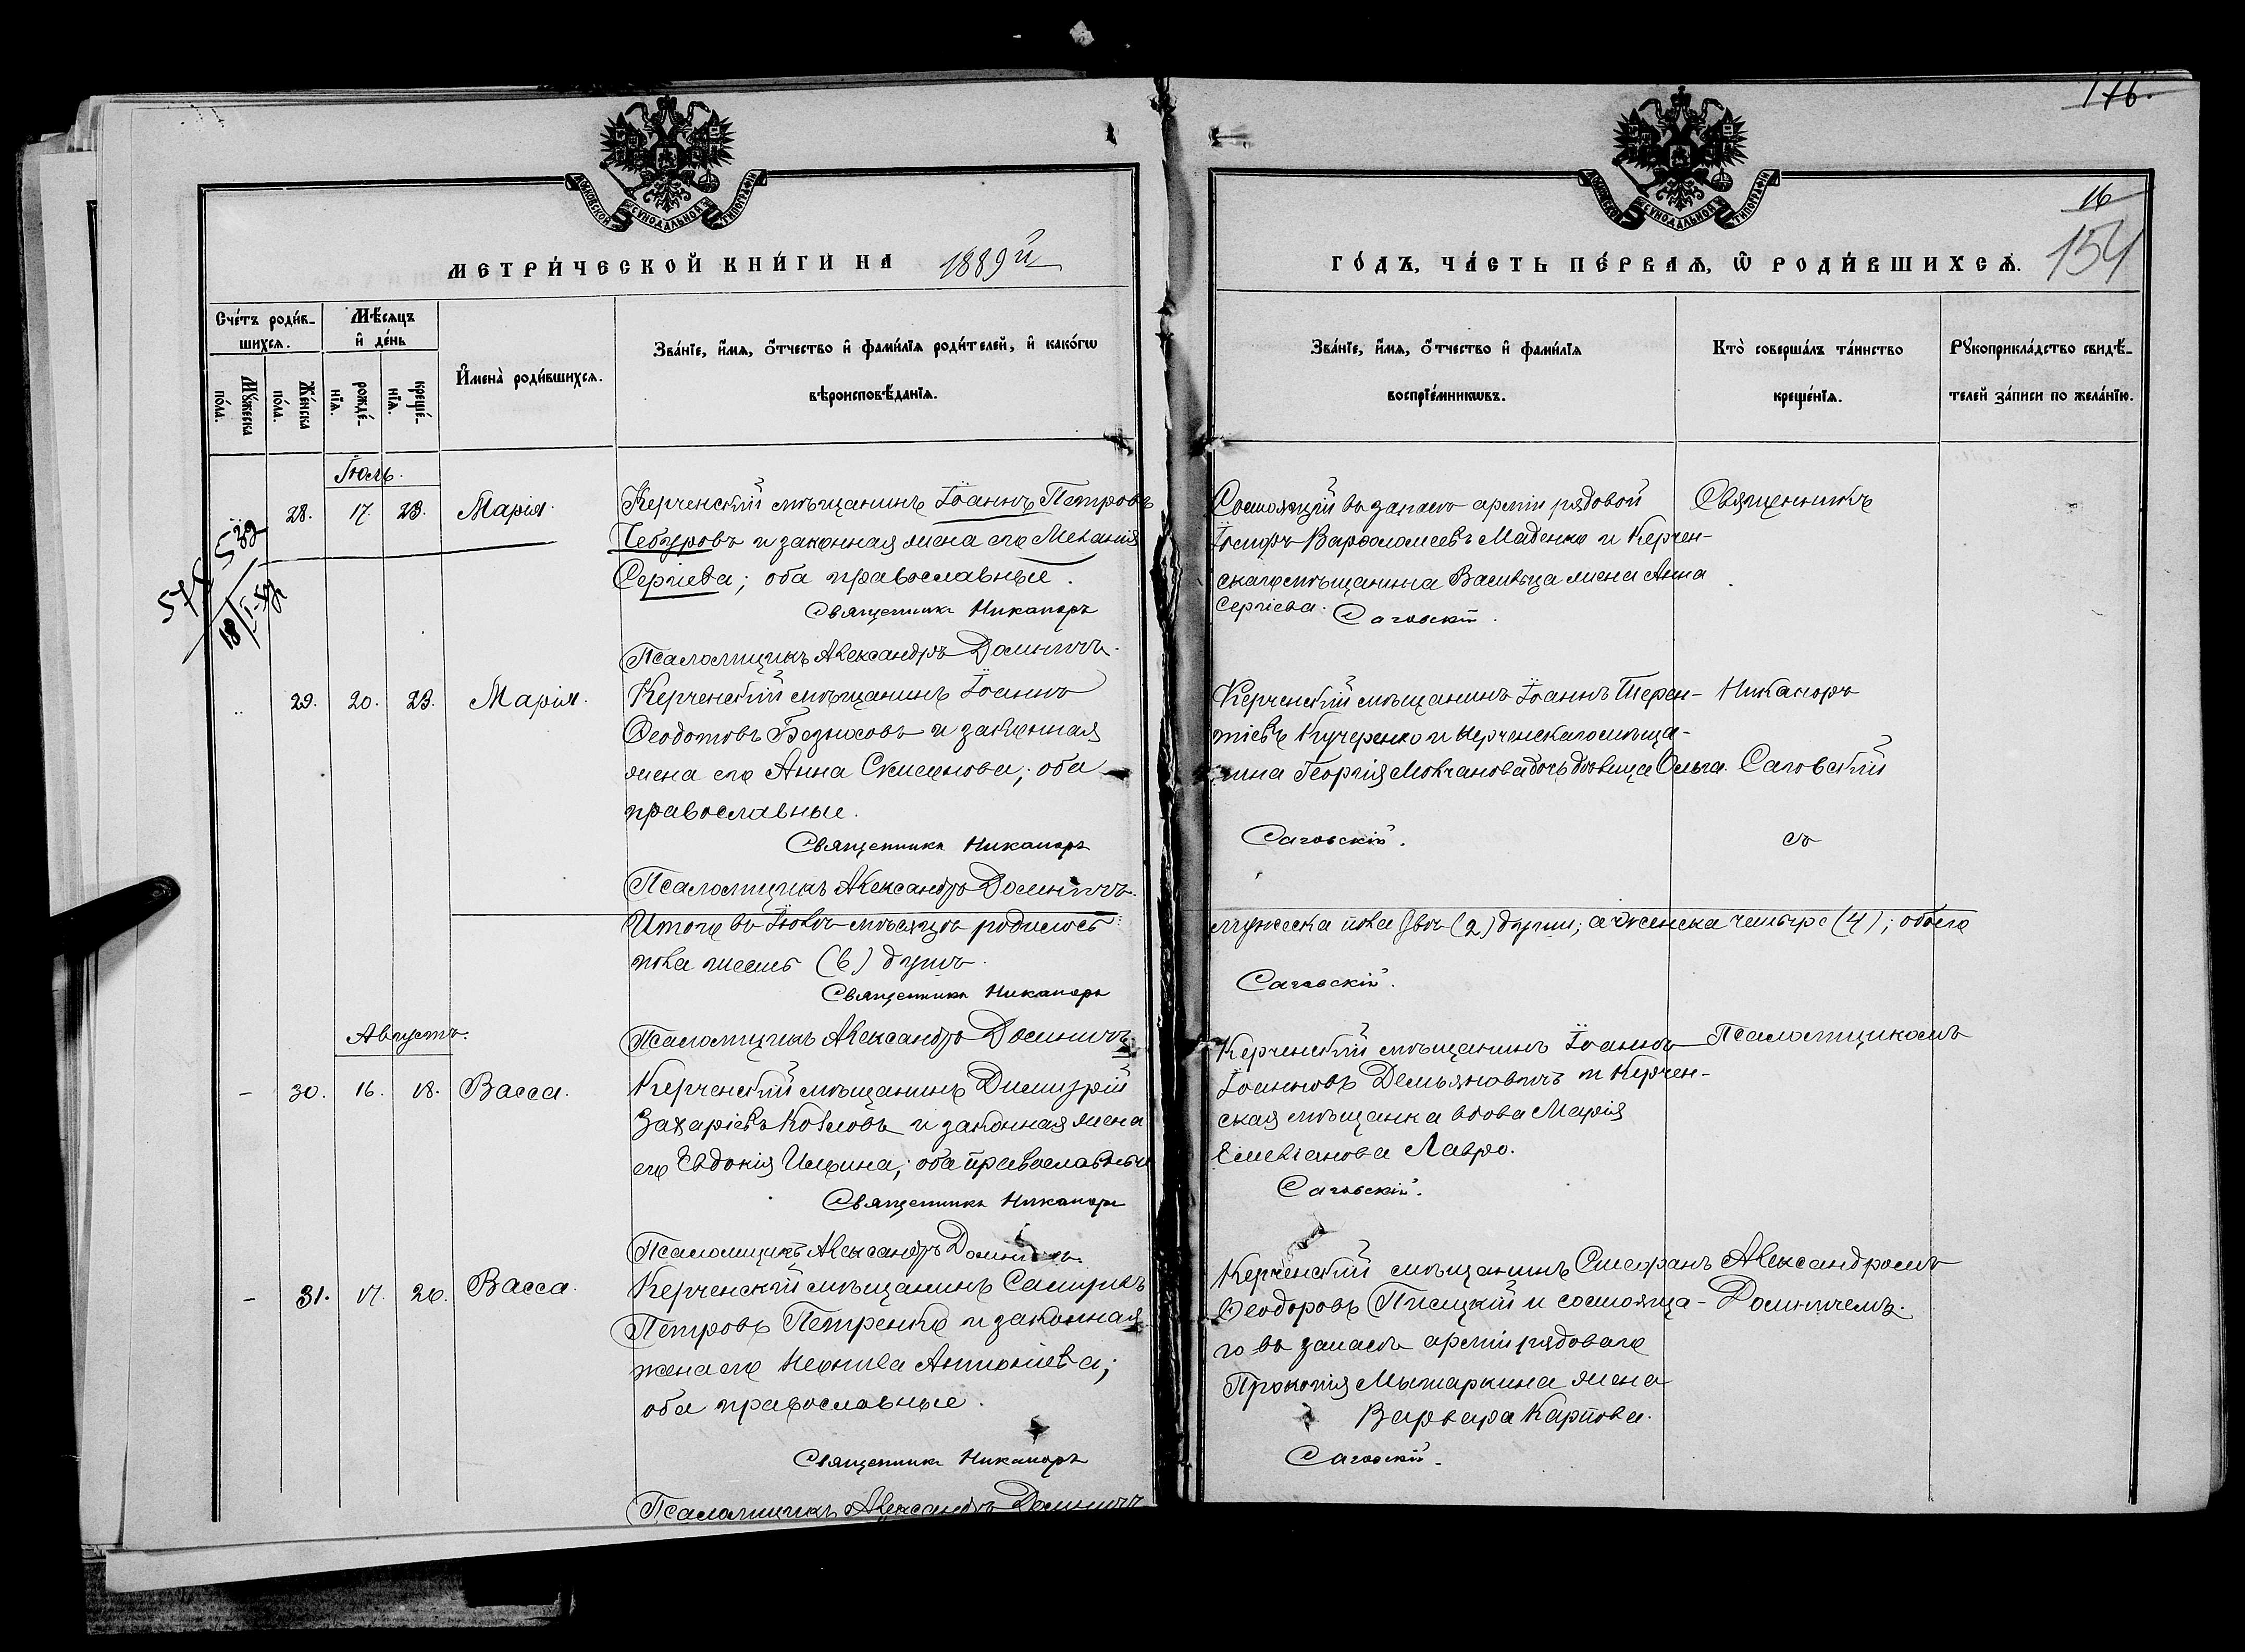 176.
16
154
МОСКОВСКОЙ СУНОДАЛЬНОЙ ТИПОГРАФІИ
МОСКОВСКОЙ СУНОДАЛЬНОЙ ТИПОГРАФІИ
МЕТРИ́ЧЕСКОЙ КНИ́ГИ НА 1889й
ГО́ДЪ, ЧА́СТЬ ПЕ́РВАѦ, Ѽ РОДИ́ВШИХСѦ.
Сче́тъ роди́в-
шихсѧ.
Мѣ́сѧцъ
и҆ де́нь
Мꙋ́жеска
по́ла.
Же́нска
по́ла.
рожде́-
нїѧ.
креще́-
нїѧ.
И҆мена̀ роди́вшихсѧ.
Зва́нїе, и҆́мѧ, ѻ҆́тчество и҆ фами́лїѧ роди́телей, и҆ како́гѡ
вѣроисповѣ́данїѧ.
Зва́нїе, и҆́мѧ, ѻ҆́тчество и҆ фами́лїѧ
воспрїе́мникѡвъ.
Кто̀ соверша́лъ та́инство
креще́нїѧ.
Рꙋкоприкла́дство свидѣ́-
телей за́писи по жела́нїю.
Іюль.
28. 17. 23. Марія.
Керченскій мѣщанинъ Іоаннъ Петровъ
Чебуровъ и законная жена его Меланія
Сергіева; оба православные.
Священникъ Никаноръ
Псаломщикъ Александръ Доминичъ.
Состоящій въ запасѣ арміи рядовой
Іосифъ Варѳоломеевъ Маденко и Керчен-
скаго мѣщанина жена Анна
Сергіева. Саговскій.
Священникъ
29. 20. 23. Марія.
Керченскій мѣщанинъ Іоаннъ
Ѳеодотовъ Безносовъ и законная
жена его Анна Симеонова; оба
православные.
Священникъ Никаноръ
Псаломщикъ Александръ Доминичъ.
Керченскій мѣщанинъ Іоаннъ Терен-
тіевъ Кучеренко и Керченскаго мѣща-
нина Георгія Молчанова дочь дѣвица Ольга.
Саговскій.
Никаноръ
Саговскій
съ
Итого въ Іюлѣ мѣсяцѣ родилось
мужеска пола двѣ (2) души; а женска четыре (4); обоего
пола шесть (6) душъ.
Священникъ Никаноръ
Саговскій.
Псаломщикъ Александръ Доминичъ
Августъ.
- 30. 16. 18. Васса.
Керченскій мѣщанинъ Димитрій
Захаріевъ Козловъ и законная жена
его Евдокія Ильина; оба православные
Священникъ Никаноръ
Псаломщикъ Александръ Доминичъ.
Керченскій мѣщанинъ Іоаннъ
Іоанновъ Демьяновичъ и Керчен-
ская мѣщанка вдова Марія
Емеліанова Лавро.
Саговскій.
Псаломщикомъ
- 31. 17. 20. Васса.
Керченскій мѣщанинъ Самуилъ
Петровъ Петренко и законная
жена его Неонила Антоніева;
оба православные.
Священникъ Никаноръ
Псаломщикъ Александръ Доминичъ
Керченскій мѣщанинъ Стефанъ
Ѳеодоровъ Писицкій и состояща-
го въ запасѣ арміи рядоваго
Прокопія Мытаркина жена
Варвара Карпова.
Саговскій.
Александромъ
Доминичемъ.